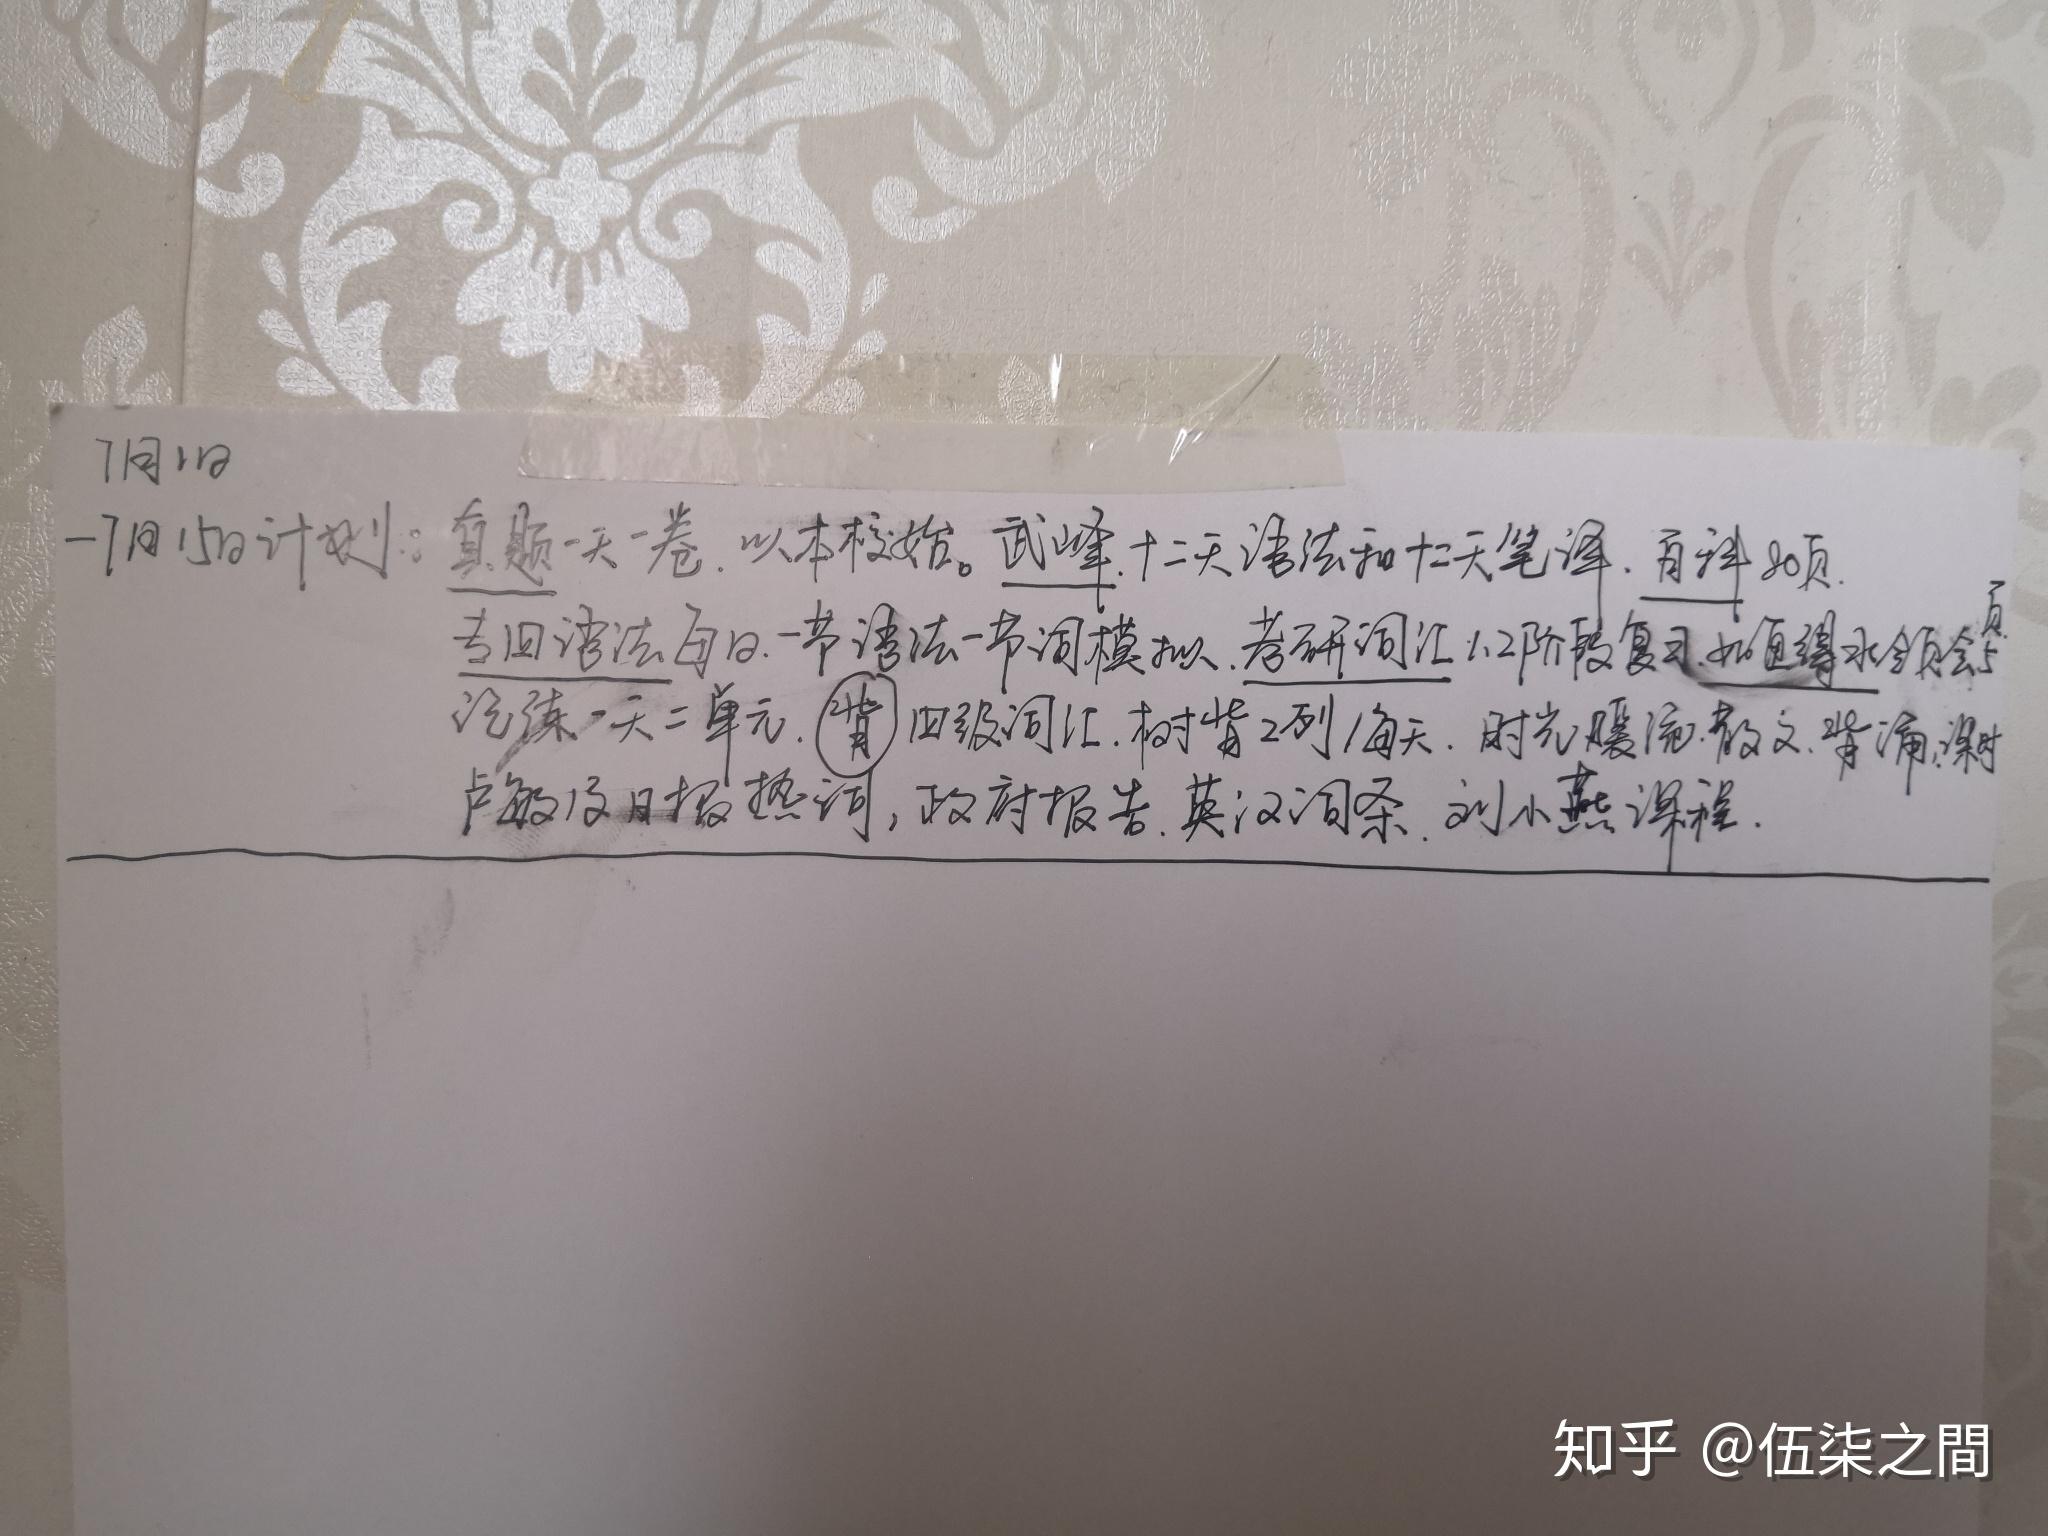 7月1日
-7月15日计划：真题一天一卷.以本校始。武峰.十二天语法和十二天笔译.百科80页.
专四语法每日.一节语法一节词模拟.考研词汇1.2阶段复习.如 得水 5页
练一天二单元.背四级词汇.树背2列/每天.时光暖流.散文.背诵,课时
卢敏及日报热词,政府报告.英汉词条.刘小燕课程.
知乎 @伍柒之間